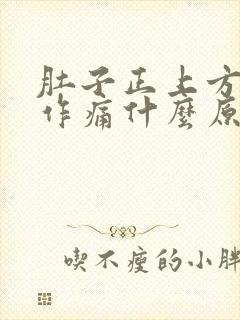 肚子正上方
作痛什麼原
喫不瘦的小胖